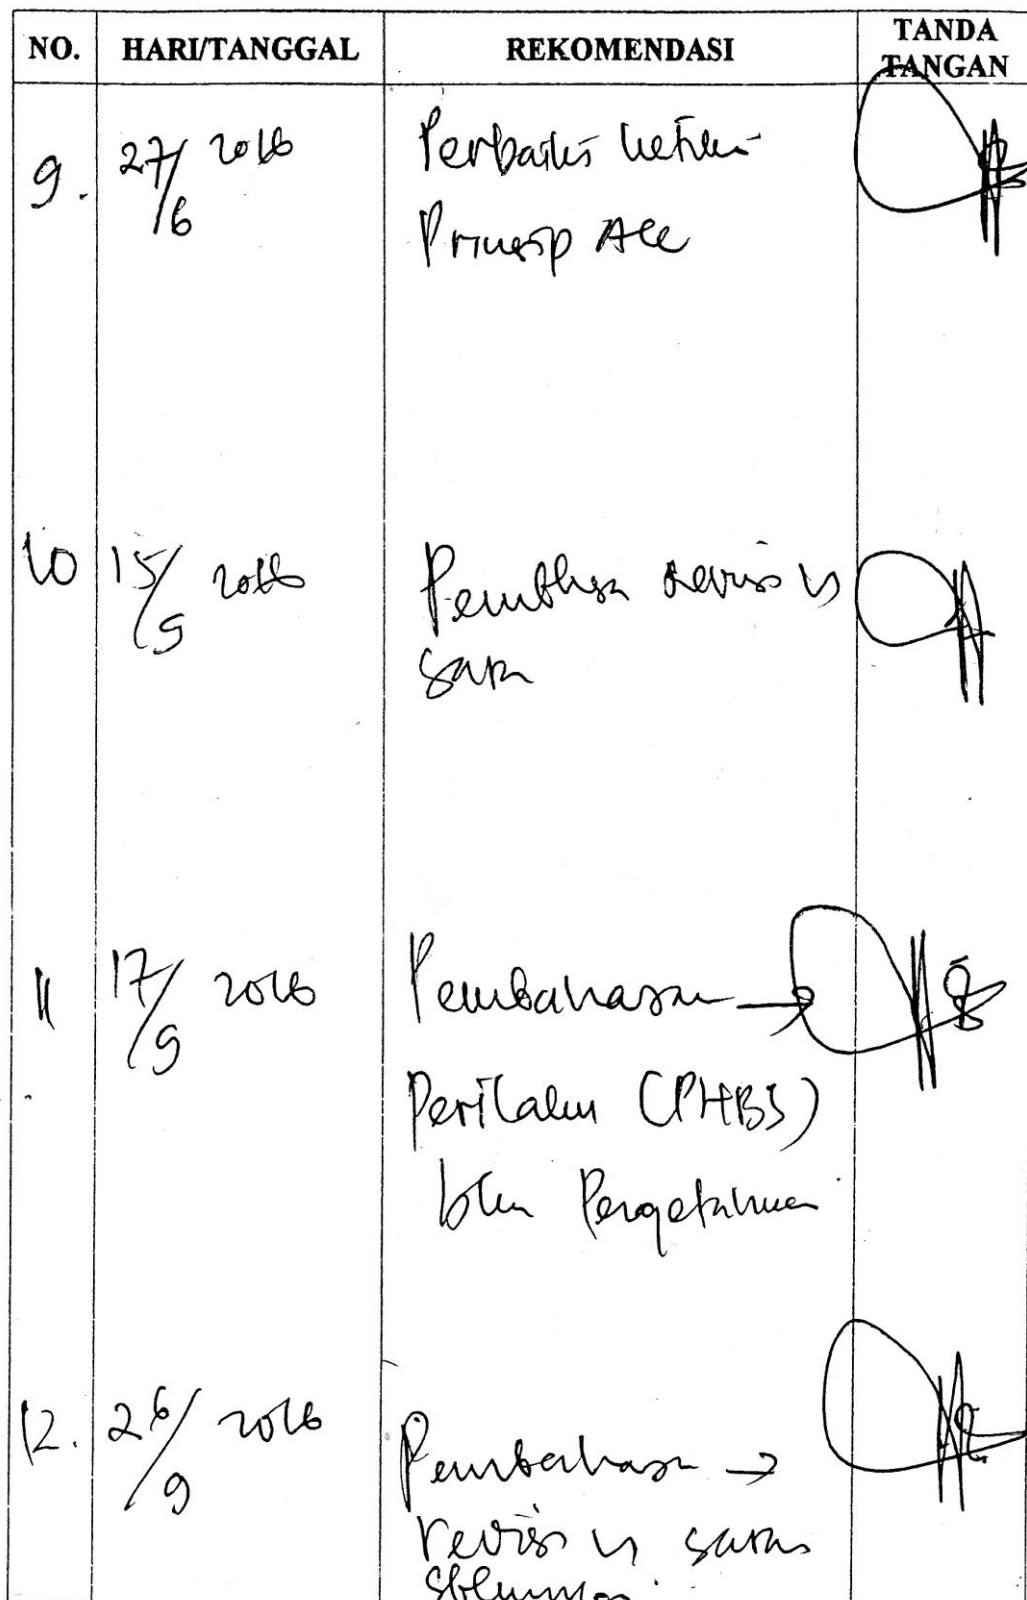 NO. HARI/TANGGAL REKOMENDASI TANDA TANGAN
9. 27/6 2016 Perbaiki
Prinsip Acc
10 15/9 2016 revisi
saran
11 17/9 2016 Pembahasan →
Perilaku (PHBS)
Pengetahuan
12. 26/9 2016 Pembahasan →
revisi saran